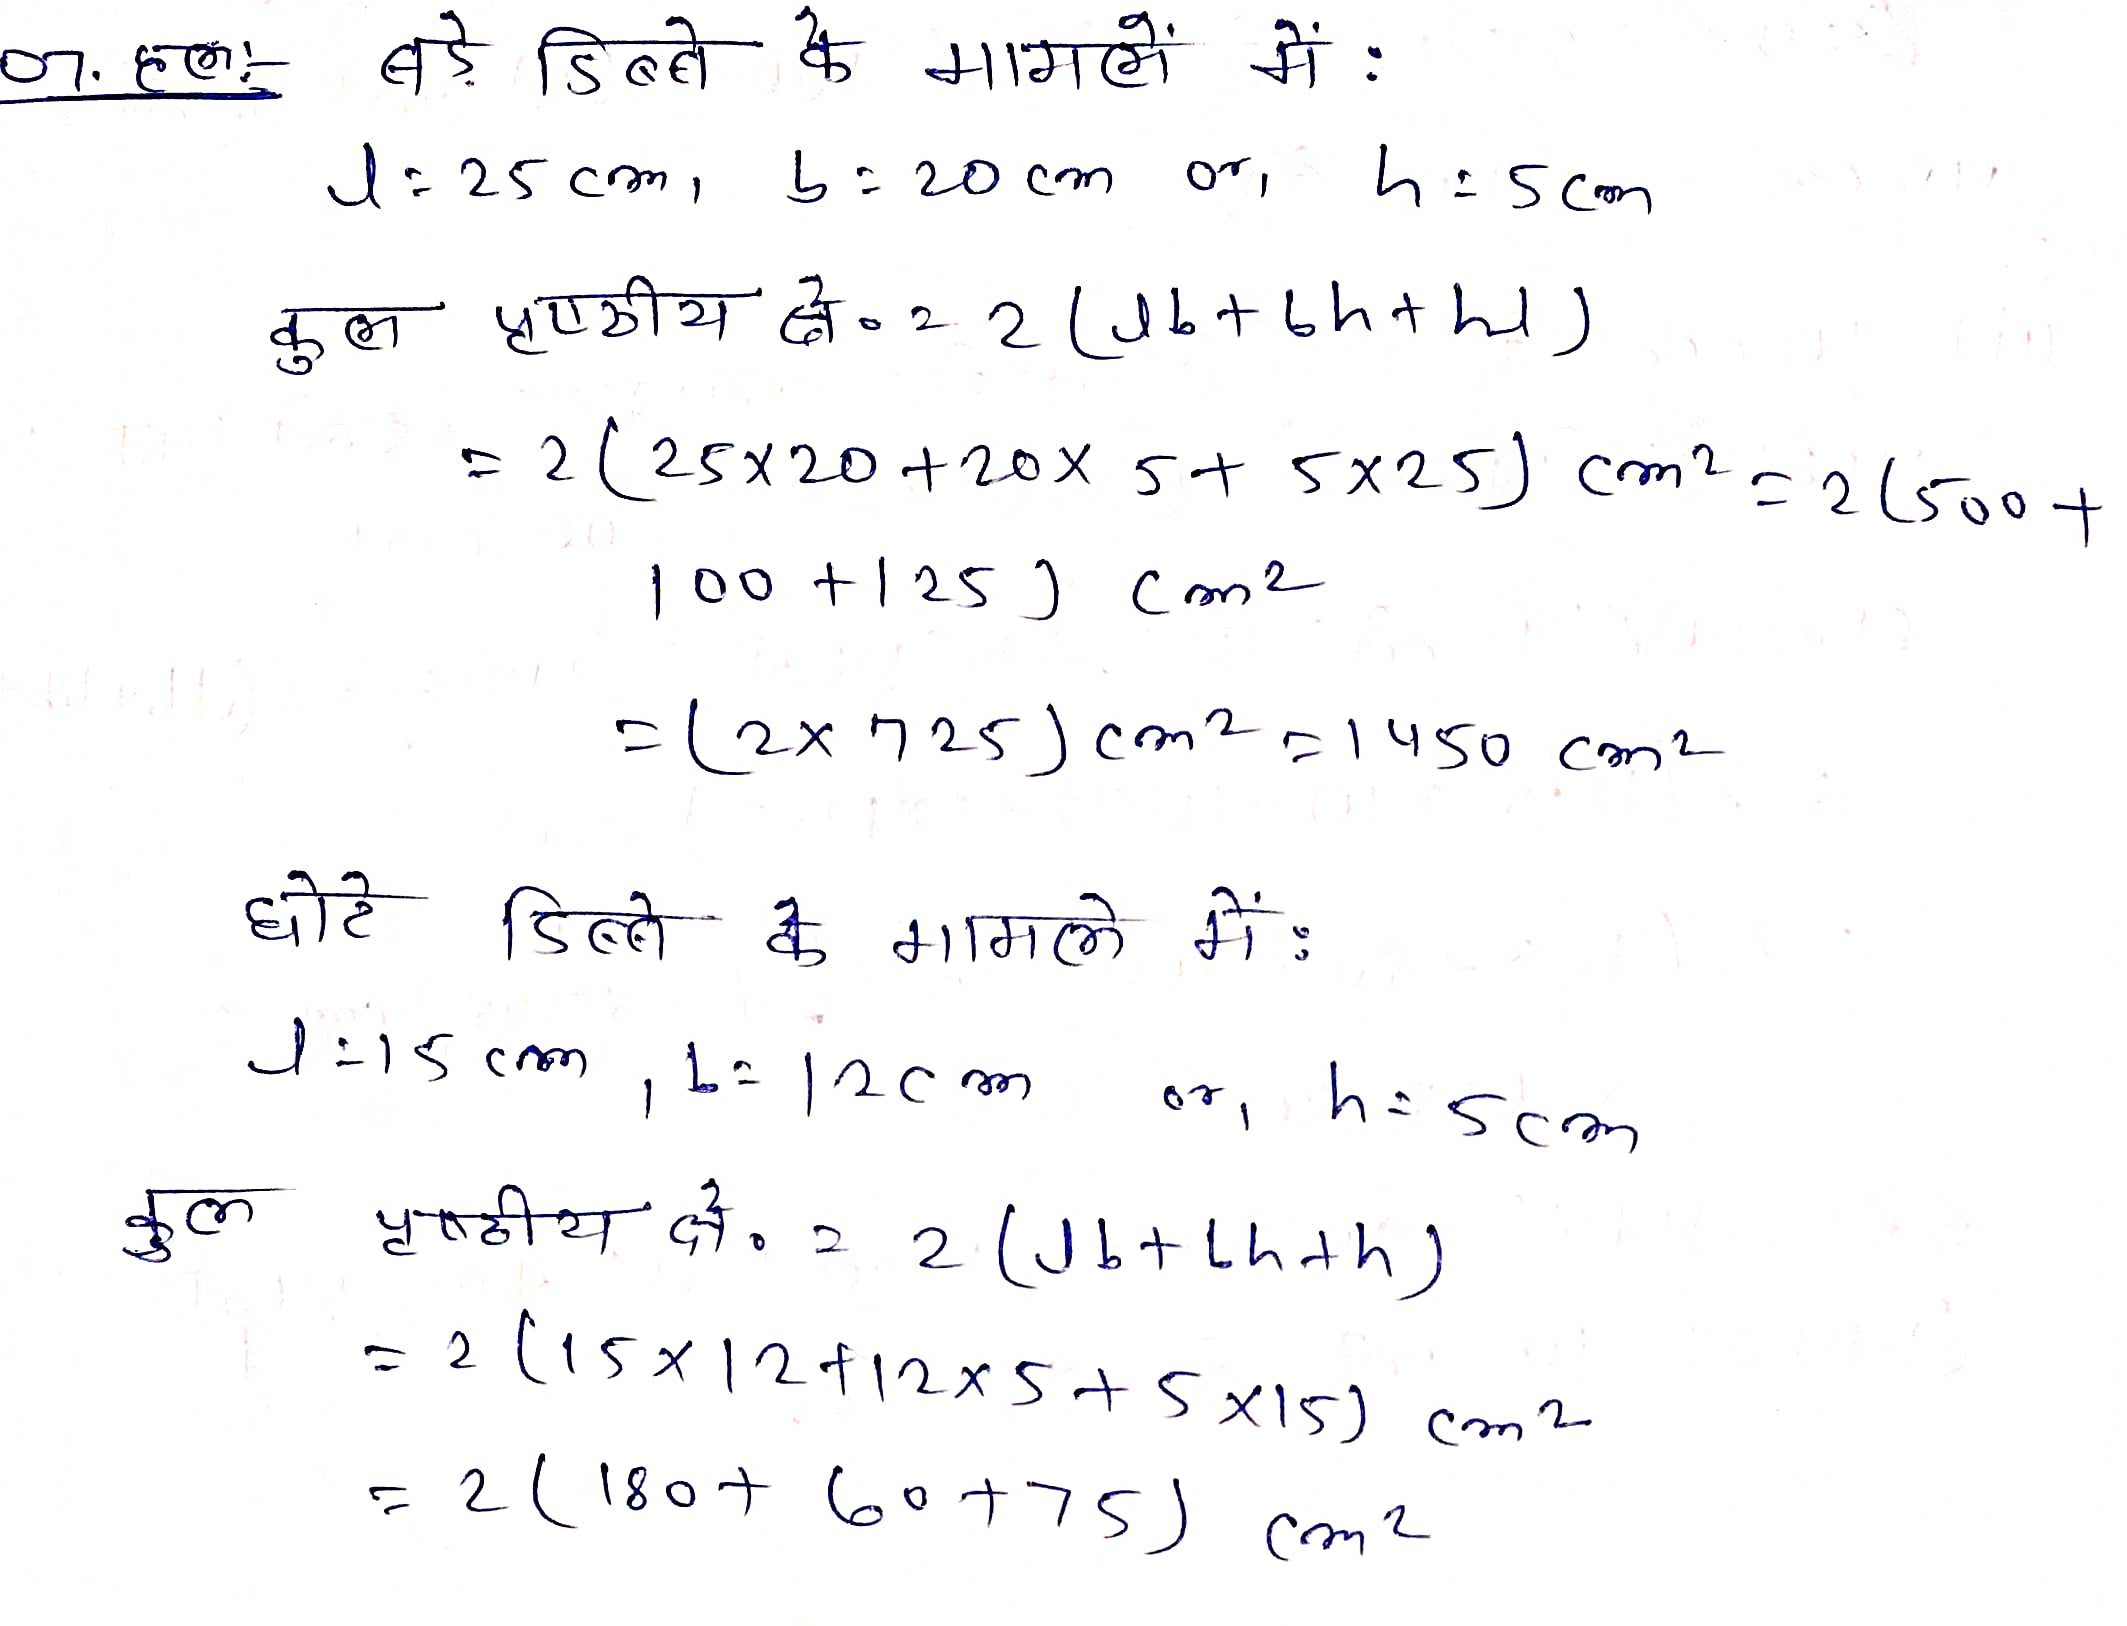 07. हल:- बड़े डिब्बे के मामलें में:
l = 25 cm, b = 20 cm or, h = 5 cm
कुल पृष्ठीय क्षे० = 2 (lb + bh + hl)
= 2 (25 × 20 + 20 × 5 + 5 × 25) cm² = 2 (500 +
100 + 125) cm²
= (2 × 725) cm² = 1450 cm²
छोटे डिब्बे के मामले में:
l = 15 cm, b = 12 cm or, h = 5 cm
कुल पृष्ठीय क्षे० = 2 (lb + bh + h)
= 2 (15 × 12 + 12 × 5 + 5 × 15) cm²
= 2 (180 + 60 + 75) cm²